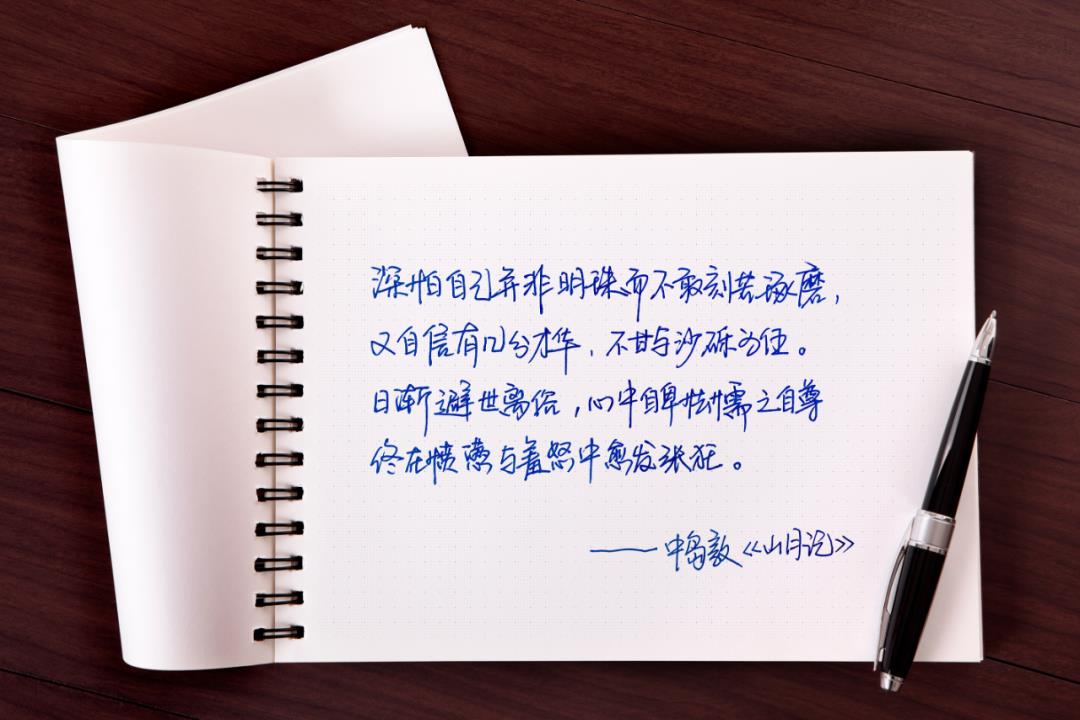 深怕自己并非明珠而不敢刻苦琢磨，
又自信有几分才华、不甘与沙砾为伍。
日渐避世离俗，心中自卑怯懦之自尊
终在愤懑与羞怒中愈发张狂。
——中岛敦《山月记》